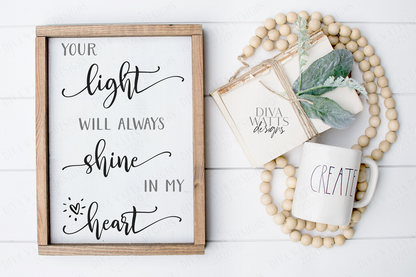 YOUR
light
WILL ALWAYS
shine
IN MY
heart
DIVA
WATTS
designs
CREATE